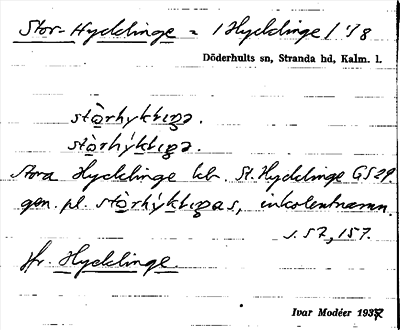 Stor-Hycklinge = 1 Hycklinge 1/78
Döderhults sn, Stranda hd, Kalm. l.
stòrhykliŋə.
stòrhýkliŋə.
Stora Hycklinge kb. St. Hycklinge GS29.
gen. pl. stòrhýkliŋas, inkolentnamn.
s. 52, 157.
Jfr. Hycklinge.
Ivar Modéer 1937